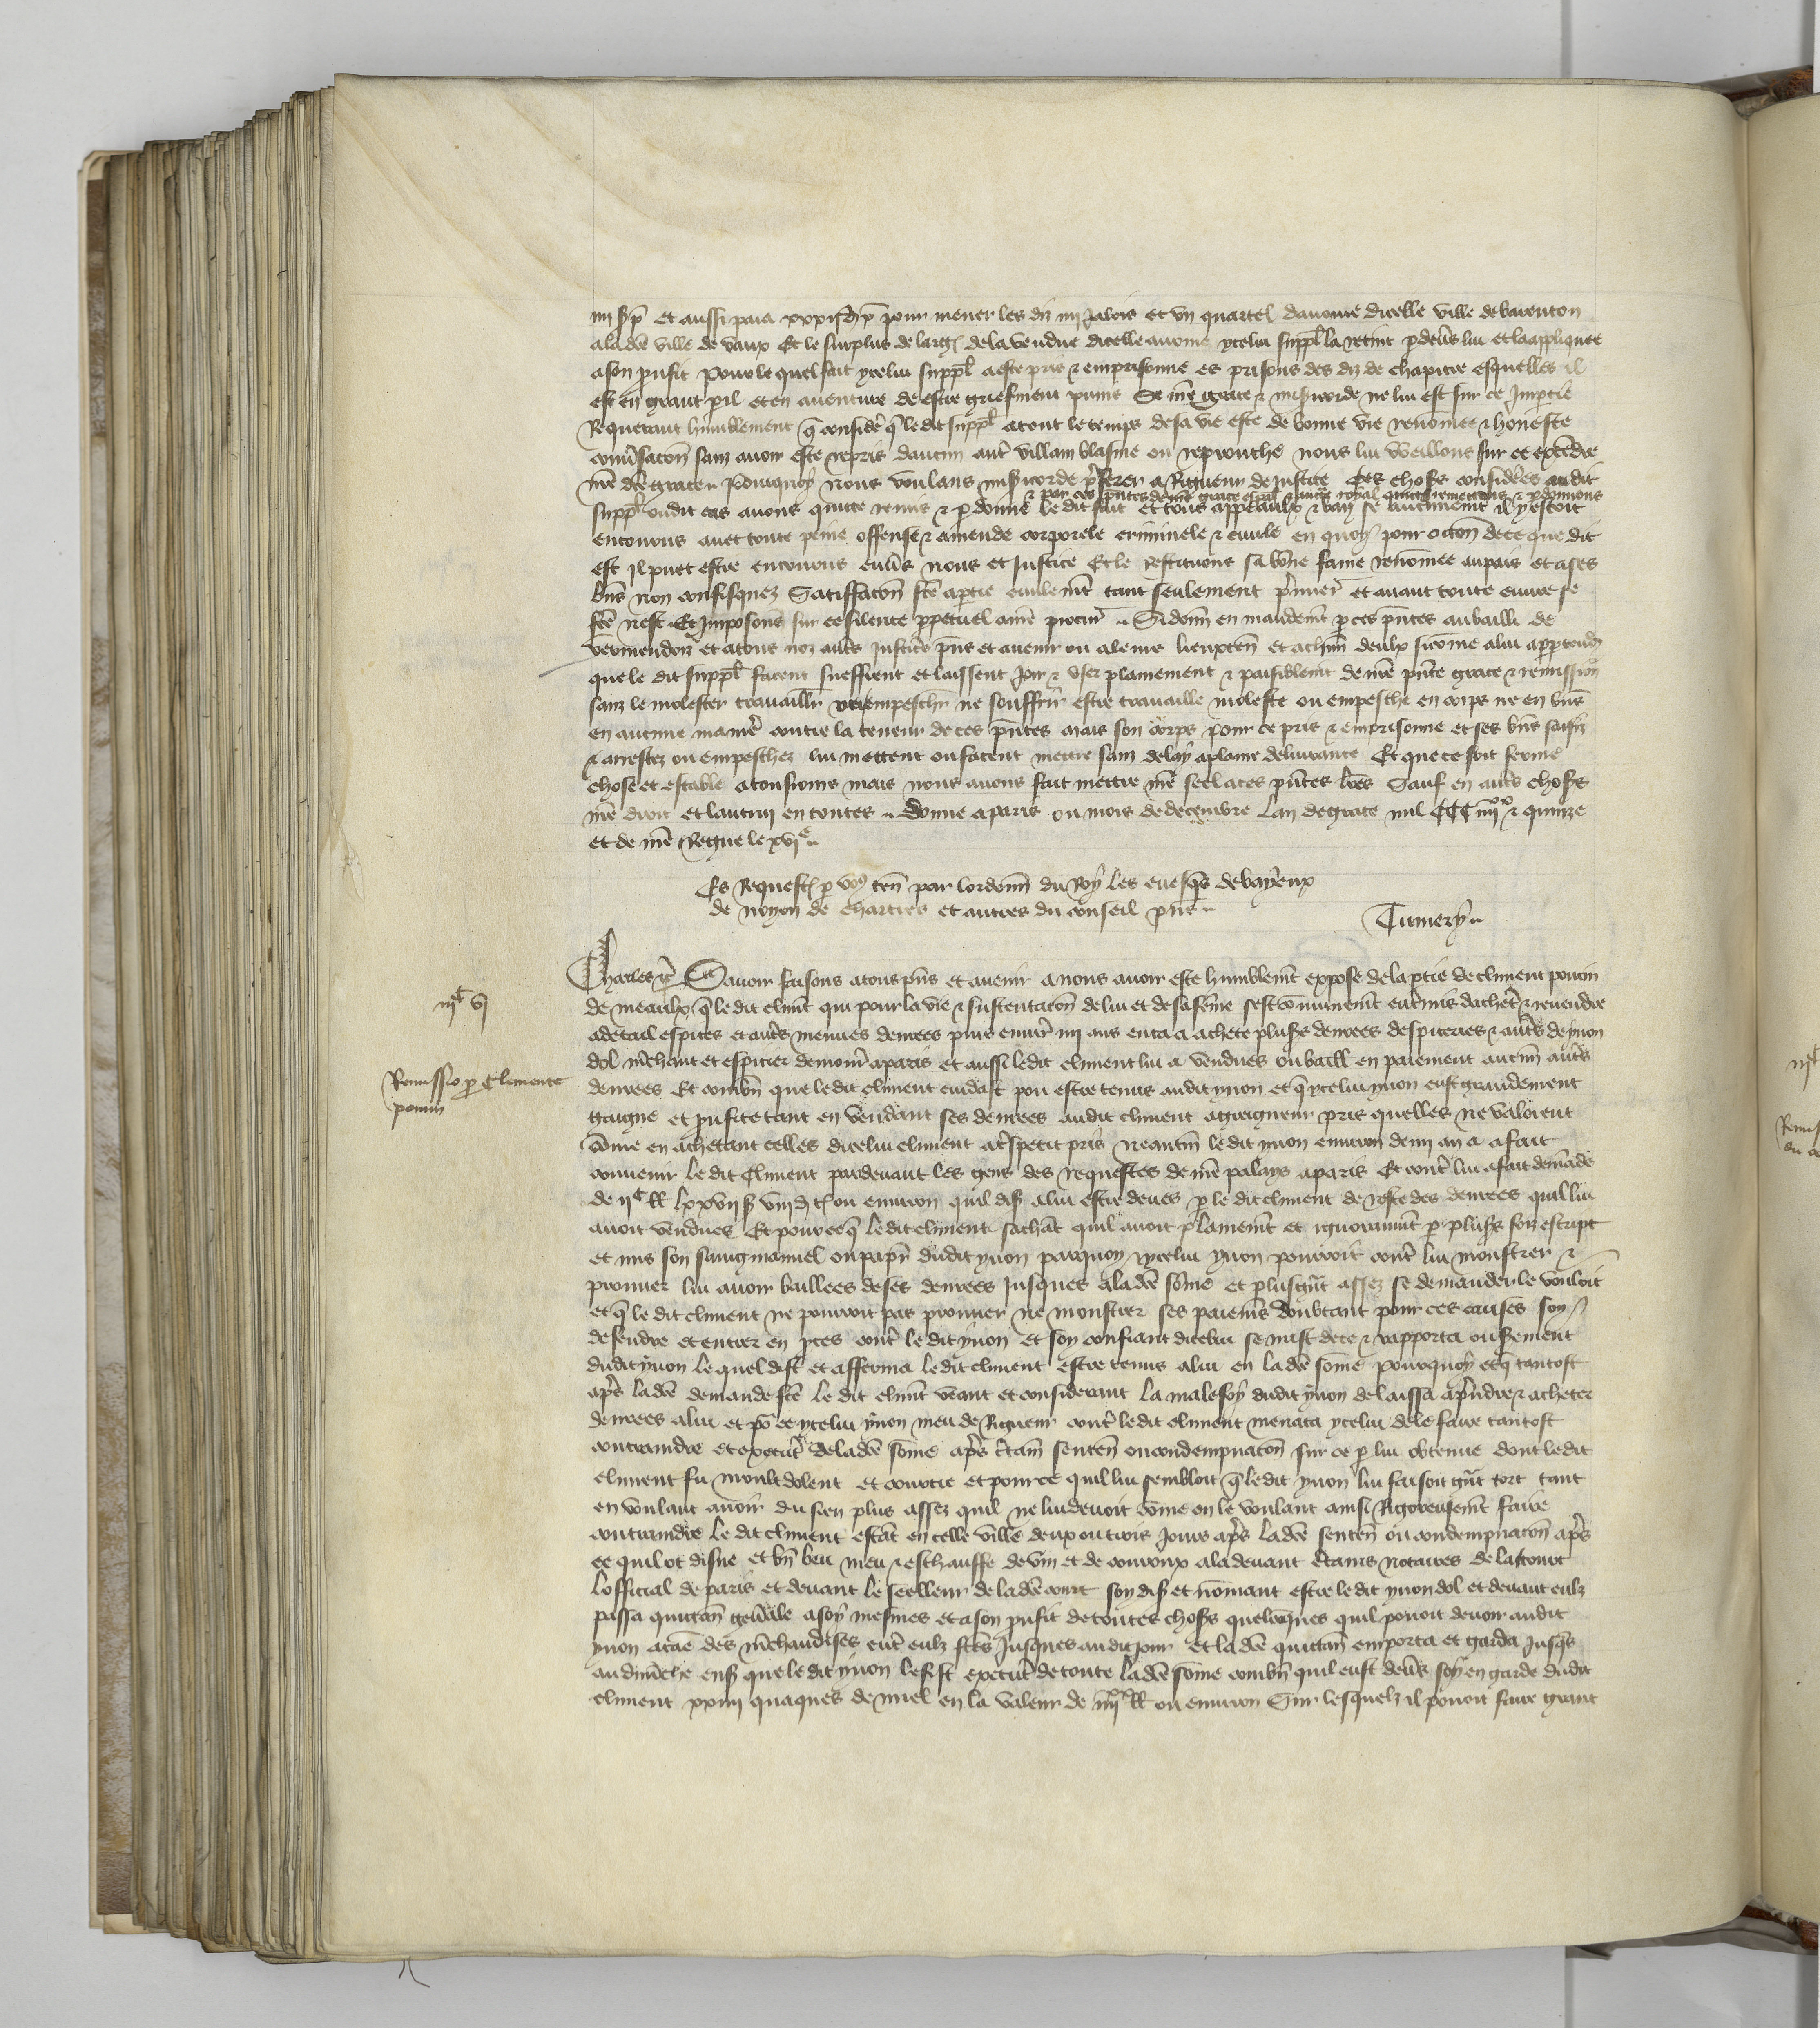 iiij s. p. et aussi paia xxxij s. p. pour mener les diz iiij Jalois et un quartel davoine dicelle ville de barenton
a lade ville de vaux Et le surplus de larg. de la vendue dicelle avoine ycelui suppl. la retint p devs lui et la appliquee
a son prufit Pour le quel fait ycelui suppl. a este pris & emprisonne es prisons des diz de chapitre esquelles il
est en grant peril et en aventure de estre griefment pune Se nre grace & misicorde ne lui est sur ce Impartie
Requerant humblement q consider q ledit suppl. a tout le temps de sa vie este de bonne vie renommee & honeste
conversacon sanz avoir este repris daucun autre villain blasme ou reprouche nous lui vueillons sur ce extendre
nre dce grace Pourquoy nous voulans misicorde preferer a Rigueur de justice Ces choses considerees audit
& par ces pntes de nre grace espal & aucte royal quictons remettons & pardonnons
suppl. ou dit cas avons quicte remis & pardonne le dit fait et tous appeaulx & ban se aucunement il y estoit
encouruz avec toute peine offense & amende corporele criminele & civile en quoy pour occon de ce que dit
est Il puet estre encouruz envs nous et justice Et le restituons sa bone fame renommee au pais et a ses
biens non confisquez Satisfaccon fce a partie civilemt tant seulement premier et avant toute euvre se
fce nest Et Imposons sur ce silence ppetuel a nre procur Si donn en mandemt p ces pntes au bailli de
vermendois et a tous noz autres justic. pns et avenir ou a leurs lieuxten. et a chun deulx si come a lui appartendra
que le dit suppl. facent sueffrent et laissent Joir & user plainement & paisiblemt de nre pnte grace & remission
sanz le molester travaillr ne empeschr ne souffrir estre travaille moleste ou empesche en corps ne en biens
en aucune maniere contre la teneur de ces pntes mais son corps pour ce pris & emprisonne et ses biens saisiz
& arrestez ou empeschez lui mettent ou facent mettre sanz delay a plaine delivrance Et que ce soit ferme
chose et estable a tousjours mais nous avons fait mettre nre seel a ces pntes lres Sauf en autres choses
nre droit et lautruy en toutes Donne a paris ou mois de decembre Lan de grace mil CCC iiijxx & quinze
et de nre Regne le xvje
Es Request. p vous ten. par lordonn. du Roy Les evesques de bayeux
de noyon de chartres et autres du conseil pns
Tumery
Charles &c. Savoir faisons a tous pns et avenir A nous avoir este humblemt expose de la partie de climent poutin
iijc vj
de meaulx q le dit climt qui pour la vie & sustentacon de lui et de sa feme sest communemt entremis dachetr & revendre
a detail espices et autres menues denrees puis envir. iiij ans en ca a achete plusrs denrees despiceries & autres de yvon
dol mchant et espicier demour. a paris et aussi ledit climent lui a vendues ou baill. en paiement aucuns autres
Remissio p Clemente
poutin
denrees Et combn que le dit climent cuidast pou estre tenus audit yvon et q ycelui yvon eust grandement
gaigne et prufite tant en vendant ses denrees audit climent a greigneur pris quelles ne valoient
come en achetant celles dicelui climent a tres petit pris neantm. le dit yvon environ demi an a a fait
convenir le dit Climent pardevant les gens des requestes de nre palays a paris Et contr. lui a fait demande
de ijc ll. lxxvij s. viij d. t. ou environ quil dis. a lui estre deues p le dit climent de reste des denrees quil lui
avoit vendues Et pource q le dit climent sachant quil avoit plainemt et ignoramt p plusrs foiz escript
et mis son saing manuel ou papier dudit yvon parquoy ycelui yvon pourroit contr. lui monstrer &
prouver lui avoir baillees de ses denrees jusques a lade somme et plus grant assez se demander le vouloit
et q le dit climent ne pourroit pas prouver ne monstrer ses paiemens Doubtant pour ces causes soy
defendre et entrer en proces contr. le dit yvon et soy confiant dicelui se mist de ce & rapporta ou serement
dudit yvon le quel dist et afferma le dit climent estre tenus a lui en lade somme pourquoy et q tantost
apres lade demande fce le dit climt veant et considerant la male foy dudit yvon delaissa aprendre & acheter
denrees a lui et pour ce ycelui yvon meu de Rigueur contr. le dit climent menaca ycelui de le faire tantost
contraindre et executr. de lade somme apres ctain. senten. ou condempnacon sur ce p lui obtenue dont le dit
climent fu moult dolent et courrcie et pource quil lui sembloit q le dit yvon lui faisoit grant tort tant
en voulant avoir du sien plus assez quil ne lui devoit come en le voulant ainsi Rigoreusemt faire
contraindre le dit climent estant en celle ville deux ou trois jours apres lade senten. ou condempnacon apres
ce quil ot disne et bn beu meu & eschauffe de vin et de courroux ala devant ctains notaires de la court
lofficial de paris et devant le seelleur de lade court soy dis. et nommant estre le dit yvon dol et devant eulz
passa quictan. genale a soy mesmes et a son prufit de toutes choses quelconques quil pouoit devoir audit
yvon a cause des mchandises entr. eulz fces jusques au dit jour Et lade quictan. emporta et garda jusqs
au dimenche ens. que le dit yvon le fist executr. de toute lade somme combn quil eust devs soy en garde dudit
climent xxiiij quaques de miel en la valeur de iiijxx ll. ou environ Sur lesquelz il pouoit faire grant